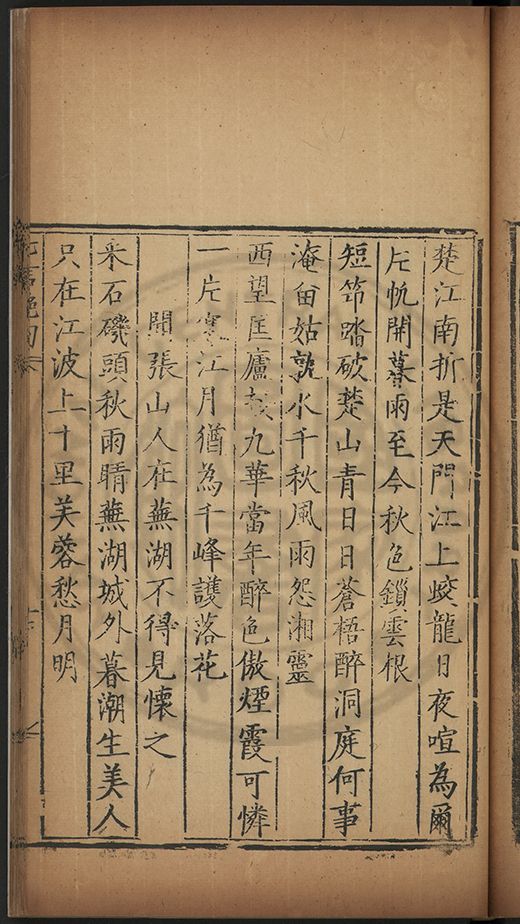 楚江南折是天門江上蛟龍日夜喧為爾
片帆開暮雨至今秋色鎖雲根
短笻踏破楚山青日日蒼梧醉洞庭何事
淹留姑孰水千秋風雨怨湘靈
西望匡廬九華當年醉色傲煙霞可憐
一片寒江月猶為千峰護落花
聞張山人在蕪湖不得見懷之
采石磯頭秋雨晴蕪湖城外暮潮生美人
只在江波上十里芙蓉愁月明
七言絕句